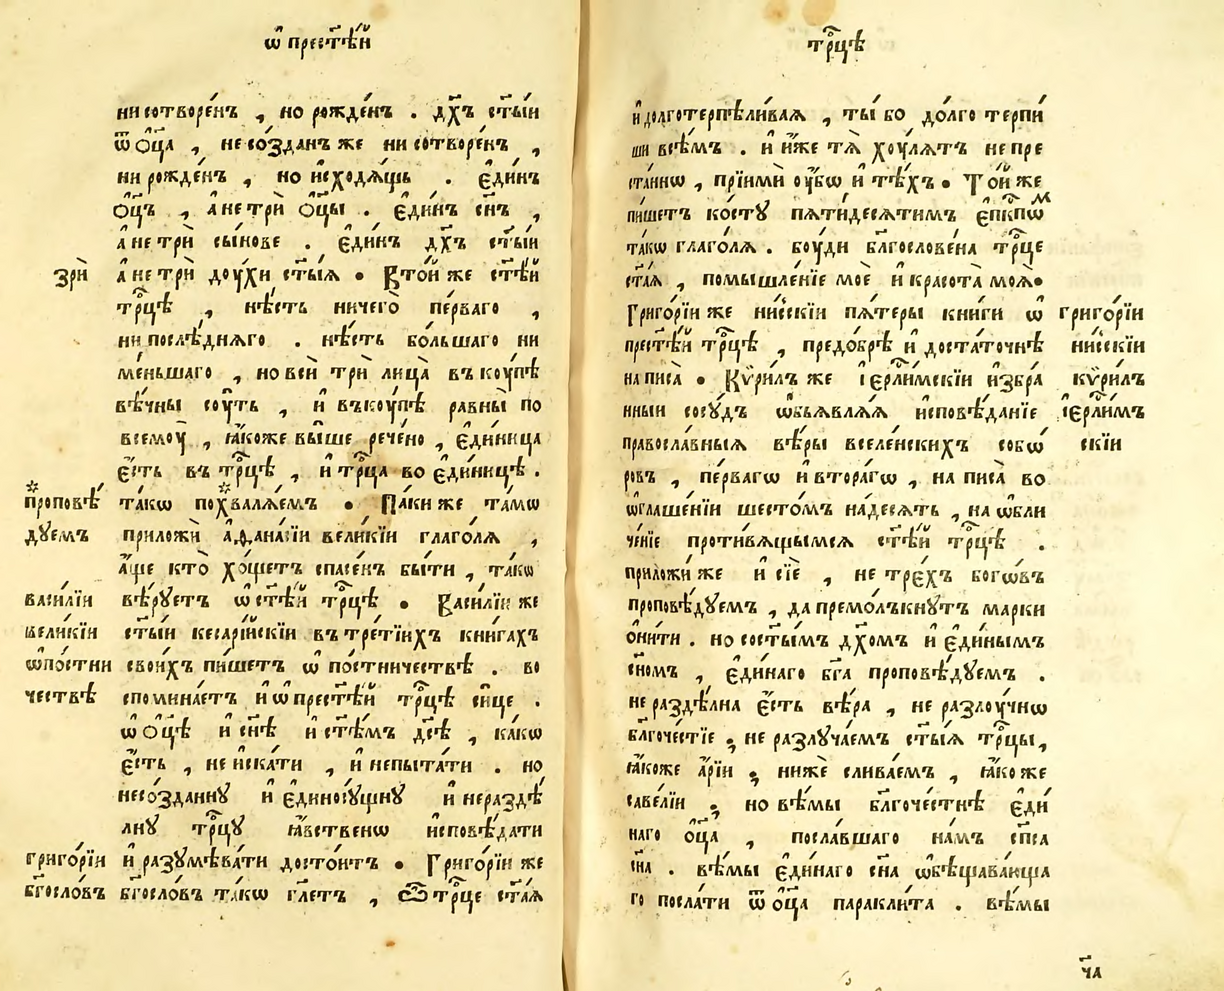 ѡ҆ прест҃ѣ́й
ни сотворе́нъ , но рожде́нъ . дх҃ъ ст҃ы́й
ѿ ѻ҆ц҃а , не со́зданъ же ни сотворе́нъ ,
ни рожде́нъ , но и҆сходѧ́щь . є҆ди́нъ
ѻ҆ц҃ъ , а҆ не трѝ ѻ҆ц҃ы . є҆ди́нъ сн҃ъ ,
а҆ не трѝ сы́нове . є҆ди́нъ дх҃ъ ст҃ы́й
зрѝ
а҆ не трѝ доу́хи ст҃ы́ѧ . В то́й же ст҃ѣ́й
трⷪ҇цѣ , нѣ́сть ничего̀ пе́рваго ,
ни послѣ́днѧго . нѣ́сть бо́льшаго ни
ме́ньшаго , но всѝ трѝ лица̀ въ коу́пѣ
вѣ́чны соу́ть , и҆ въкоу́пѣ равны̀ по
всемоу̀ , ꙗ҆́коже вы́ше рече́но , є҆дини́ца
є҆́сть въ трⷪ҇цѣ , и҆ трⷪ҇ца во є҆дини́цѣ .
проповѣ́
дуемъ
та́кѡ похвалѧ́емъ . Па́ки же та́мѡ
приложѝ а҆ѳана́сїи вели́кїи глаго́лѧ ,
а҆́ще кто̀ хо́щетъ спасе́нъ бы́ти , та́кѡ
васи́лїи
вели́кїи
ѡ҆по́стни
чествѣ
вѣ́руетъ ѡ҆ ст҃ѣ́й трⷪ҇цѣ . Васи́лїи же
ст҃ы́й кесарі́йскїи въ тре́тїихъ кни́гахъ
свои́хъ пи́шетъ ѡ҆ по́стничествѣ . во
спомина́етъ и҆ ѡ҆ прест҃ѣ́й трⷪ҇цѣ си́це .
ѡ҆ ѻ҆ц҃ѣ и҆ сн҃ѣ и҆ ст҃ѣ́мъ дс҃ѣ , ка́кѡ
є҆́сть , не и҆ска́ти , и҆ непыта́ти . но
несо́зданну и҆ є҆диносу́щну и҆ неразде́
лну трⷪ҇цу ꙗ҆́вственѡ и҆сповѣ́дати
григо́рїи
бг҃осло́въ
и҆ разумѣва́ти досто́итъ . Григо́рїи же
бг҃осло́въ та́кѡ гл҃етъ , Ѽ трⷪ҇це ст҃а́ѧ
трⷪ҇цѣ
и҆ долготерпѣли́ваѧ , ты́ бо до́лго терпи́
ши всѣ́мъ . и҆ и҆́же тѧ̀ хоу́лѧтъ не пре
ста́ннѡ , прїимѝ оу҆́бѡ и҆ тѣ́хъ . То́й же
пи́шетъ ко́сту пѧ́тидесѧ́тимъ є҆пⷭ҇кпѡⷨ
та́кѡ глаго́лѧ . боу́ди бл҃гослове́на трⷪ҇це
ст҃а́ѧ , помышле́нїе моѐ и҆ красота̀ моѧ̀ .
Григо́рїи же ни́сскїи пѧ́теры кни́ги ѡ҆
григо́рїи
ни́сскїи
прест҃ѣ́й трⷪ҇цѣ , предо́брѣ и҆ доста́точнѣ
написа̀ . Кѷри́лъ же і҆ерⷭ҇ли́мскїи и҆збра́
кѷри́лъ
і҆ерⷭ҇ли́мъ
скїи
нныи сосу́дъ ѡ҆бъѧвлѧ́ѧ и҆сповѣ́данїе
правосла́вныѧ вѣ́ры вселе́нскихъ собѡ́
ровъ , пе́рвагѡ и҆ втора́гѡ , на писа̀ во
ѡ҆глаше́нїи шесто́мъ на́десѧть , на ѡ҆бли
че́нїе проти́вѧщымсѧ ст҃ѣ́й трⷪ҇цѣ .
приложи́ же и҆ сїѐ , не тре́хъ богѡ́въ
проповѣ́дуемъ , да премо́лъкнутъ марки
ѻ҆ни́ти . но со ст҃ы́мъ дх҃омъ и҆ є҆ди́нымъ
сн҃омъ , є҆ди́наго бг҃а проповѣ́дуемъ .
не разде́лна є҆́сть вѣ́ра , не разлоу́чнѡ
бл҃гоче́стїе , не разлуча́емъ ст҃ы́ѧ трⷪ҇цы,
ꙗ҆́коже а҆́рїи , нижѐ слива́емъ , ꙗ҆́коже
саве́лїи , но вѣ́мы бл҃гоче́стнѣ є҆ди́
наго ѻ҆ц҃а , посла́вшаго на́мъ сп҃са
сн҃а . вѣ́мы є҆ди́наго сн҃а ѡ҆бѣщава́юща
го посла́ти ѿ ѻ҆ц҃а паракли́та . вѣ́мы
ч҃а